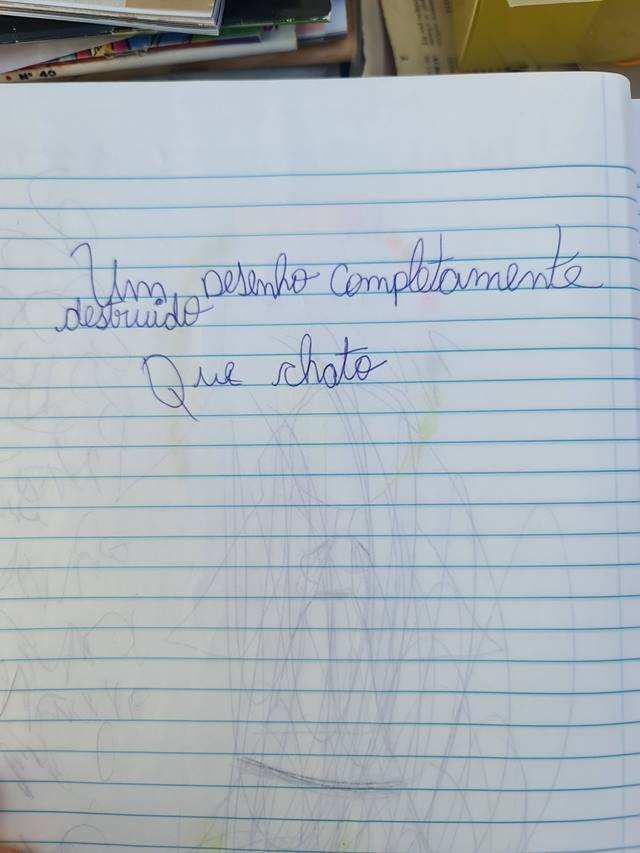 Nº 40
Um Desenho completamente
destruido
Que chato